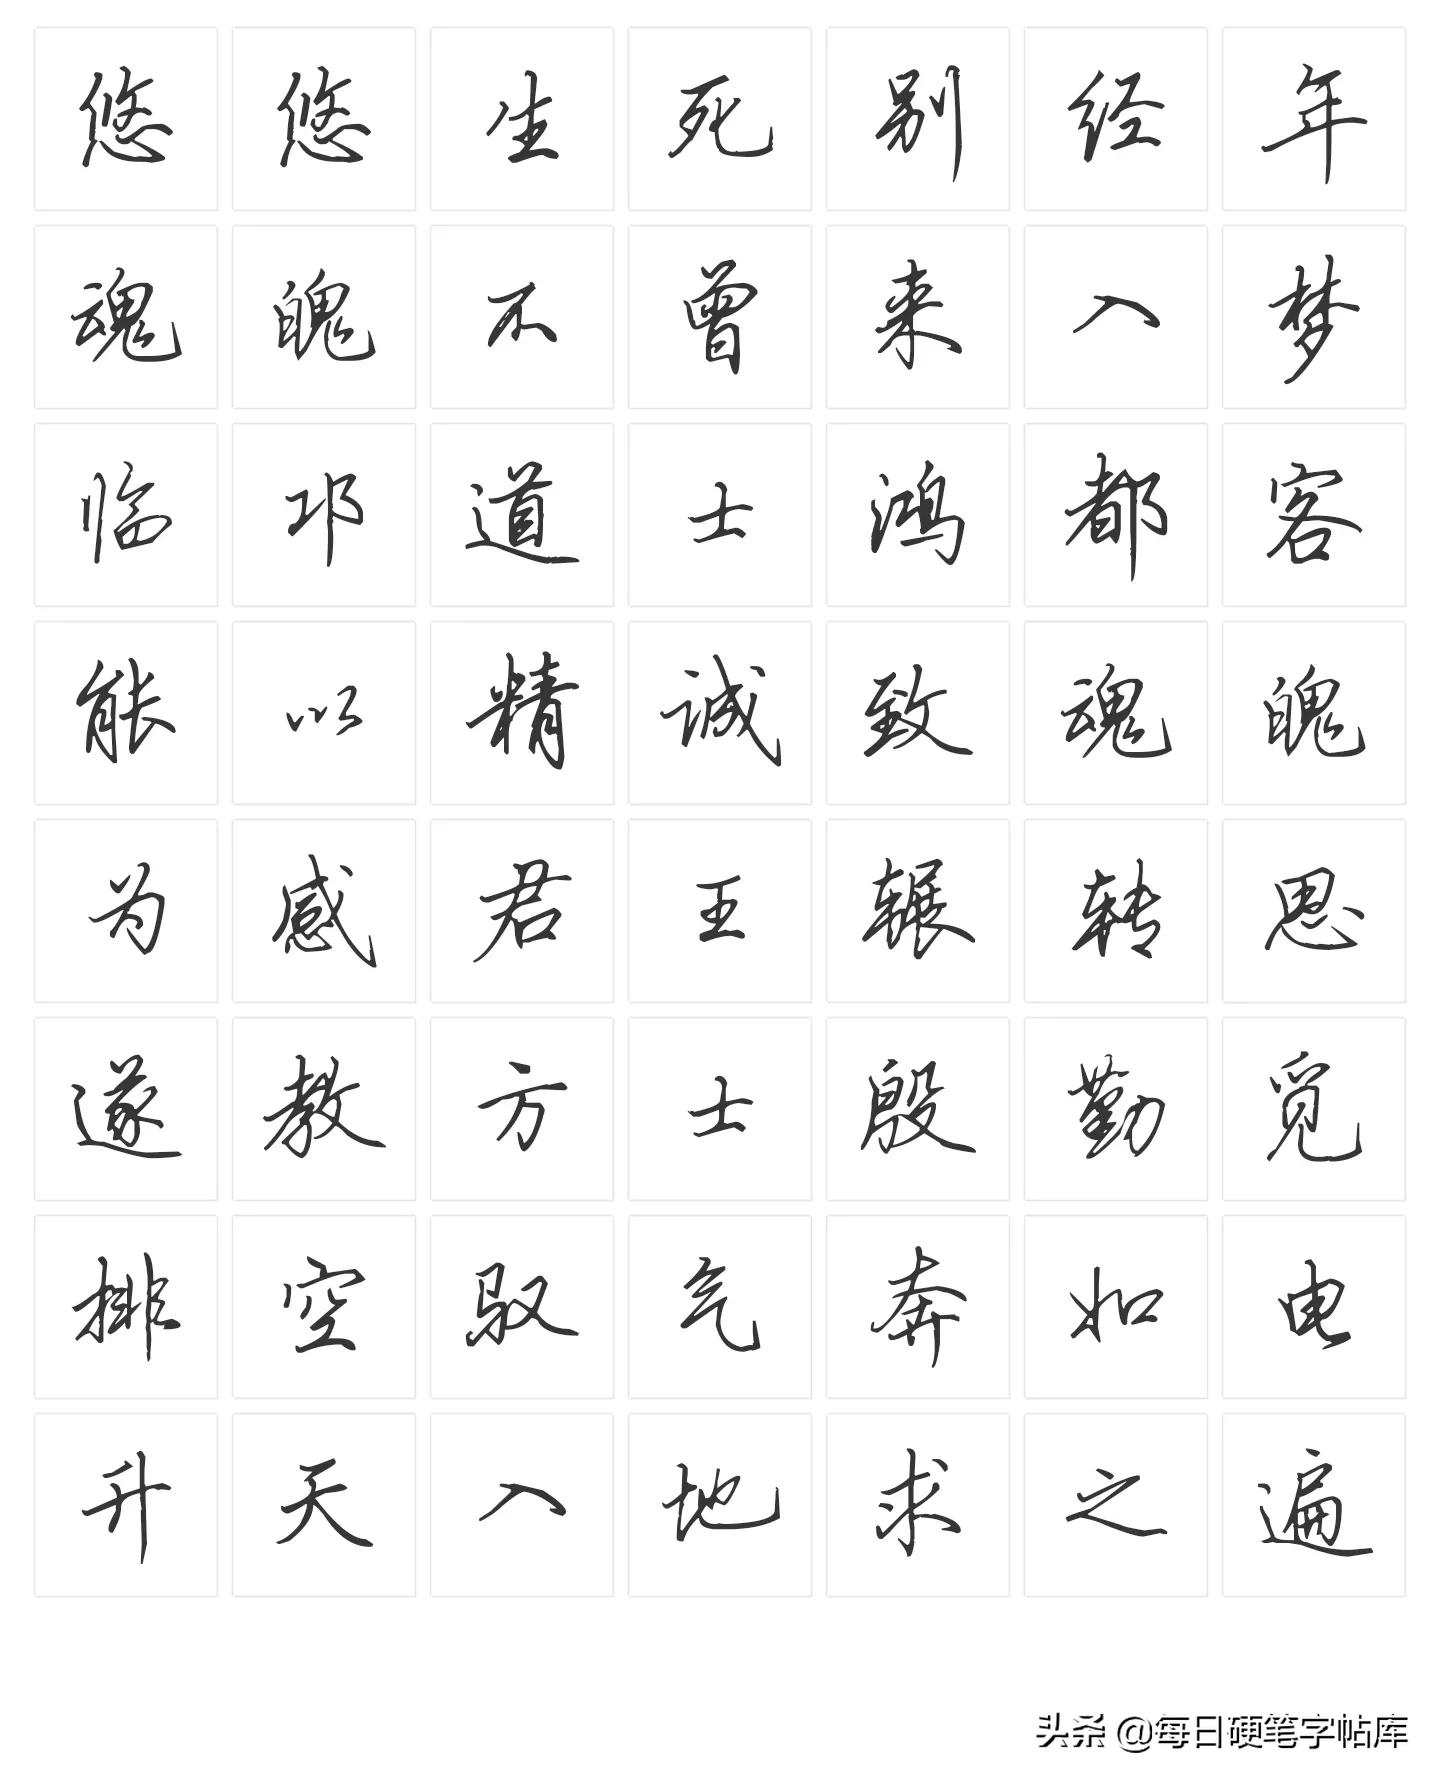 悠悠生死别经年
魂魄不曾来入梦
临邛道士鸿都客
能以精诚致魂魄
为感君王辗转思
遂教方士殷勤觅
排空驭气奔如电
升天入地求之遍
头条 @每日硬笔字帖库